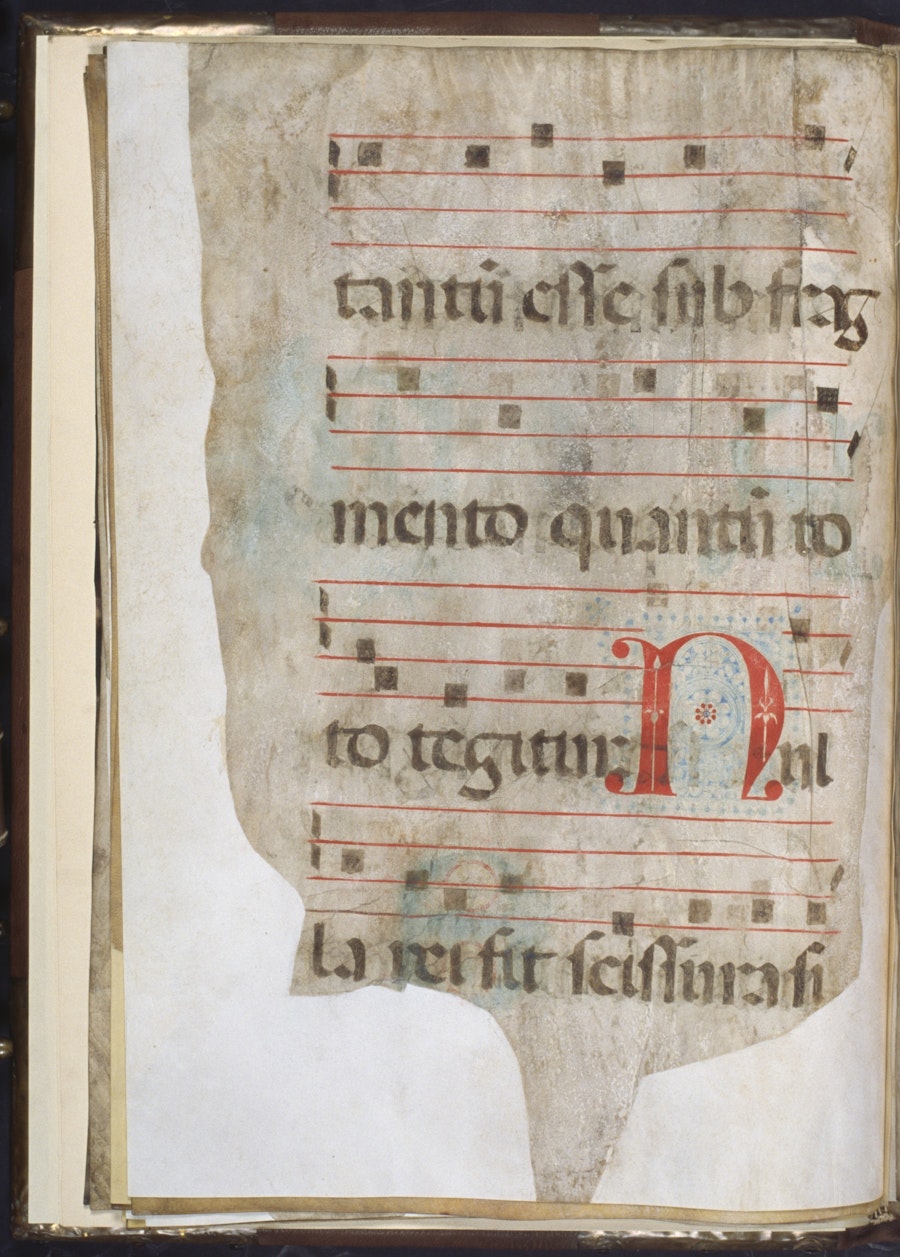 tantũ esse sub frag
mento quantũ to
to tegitur Nul
la rei fit scissura si